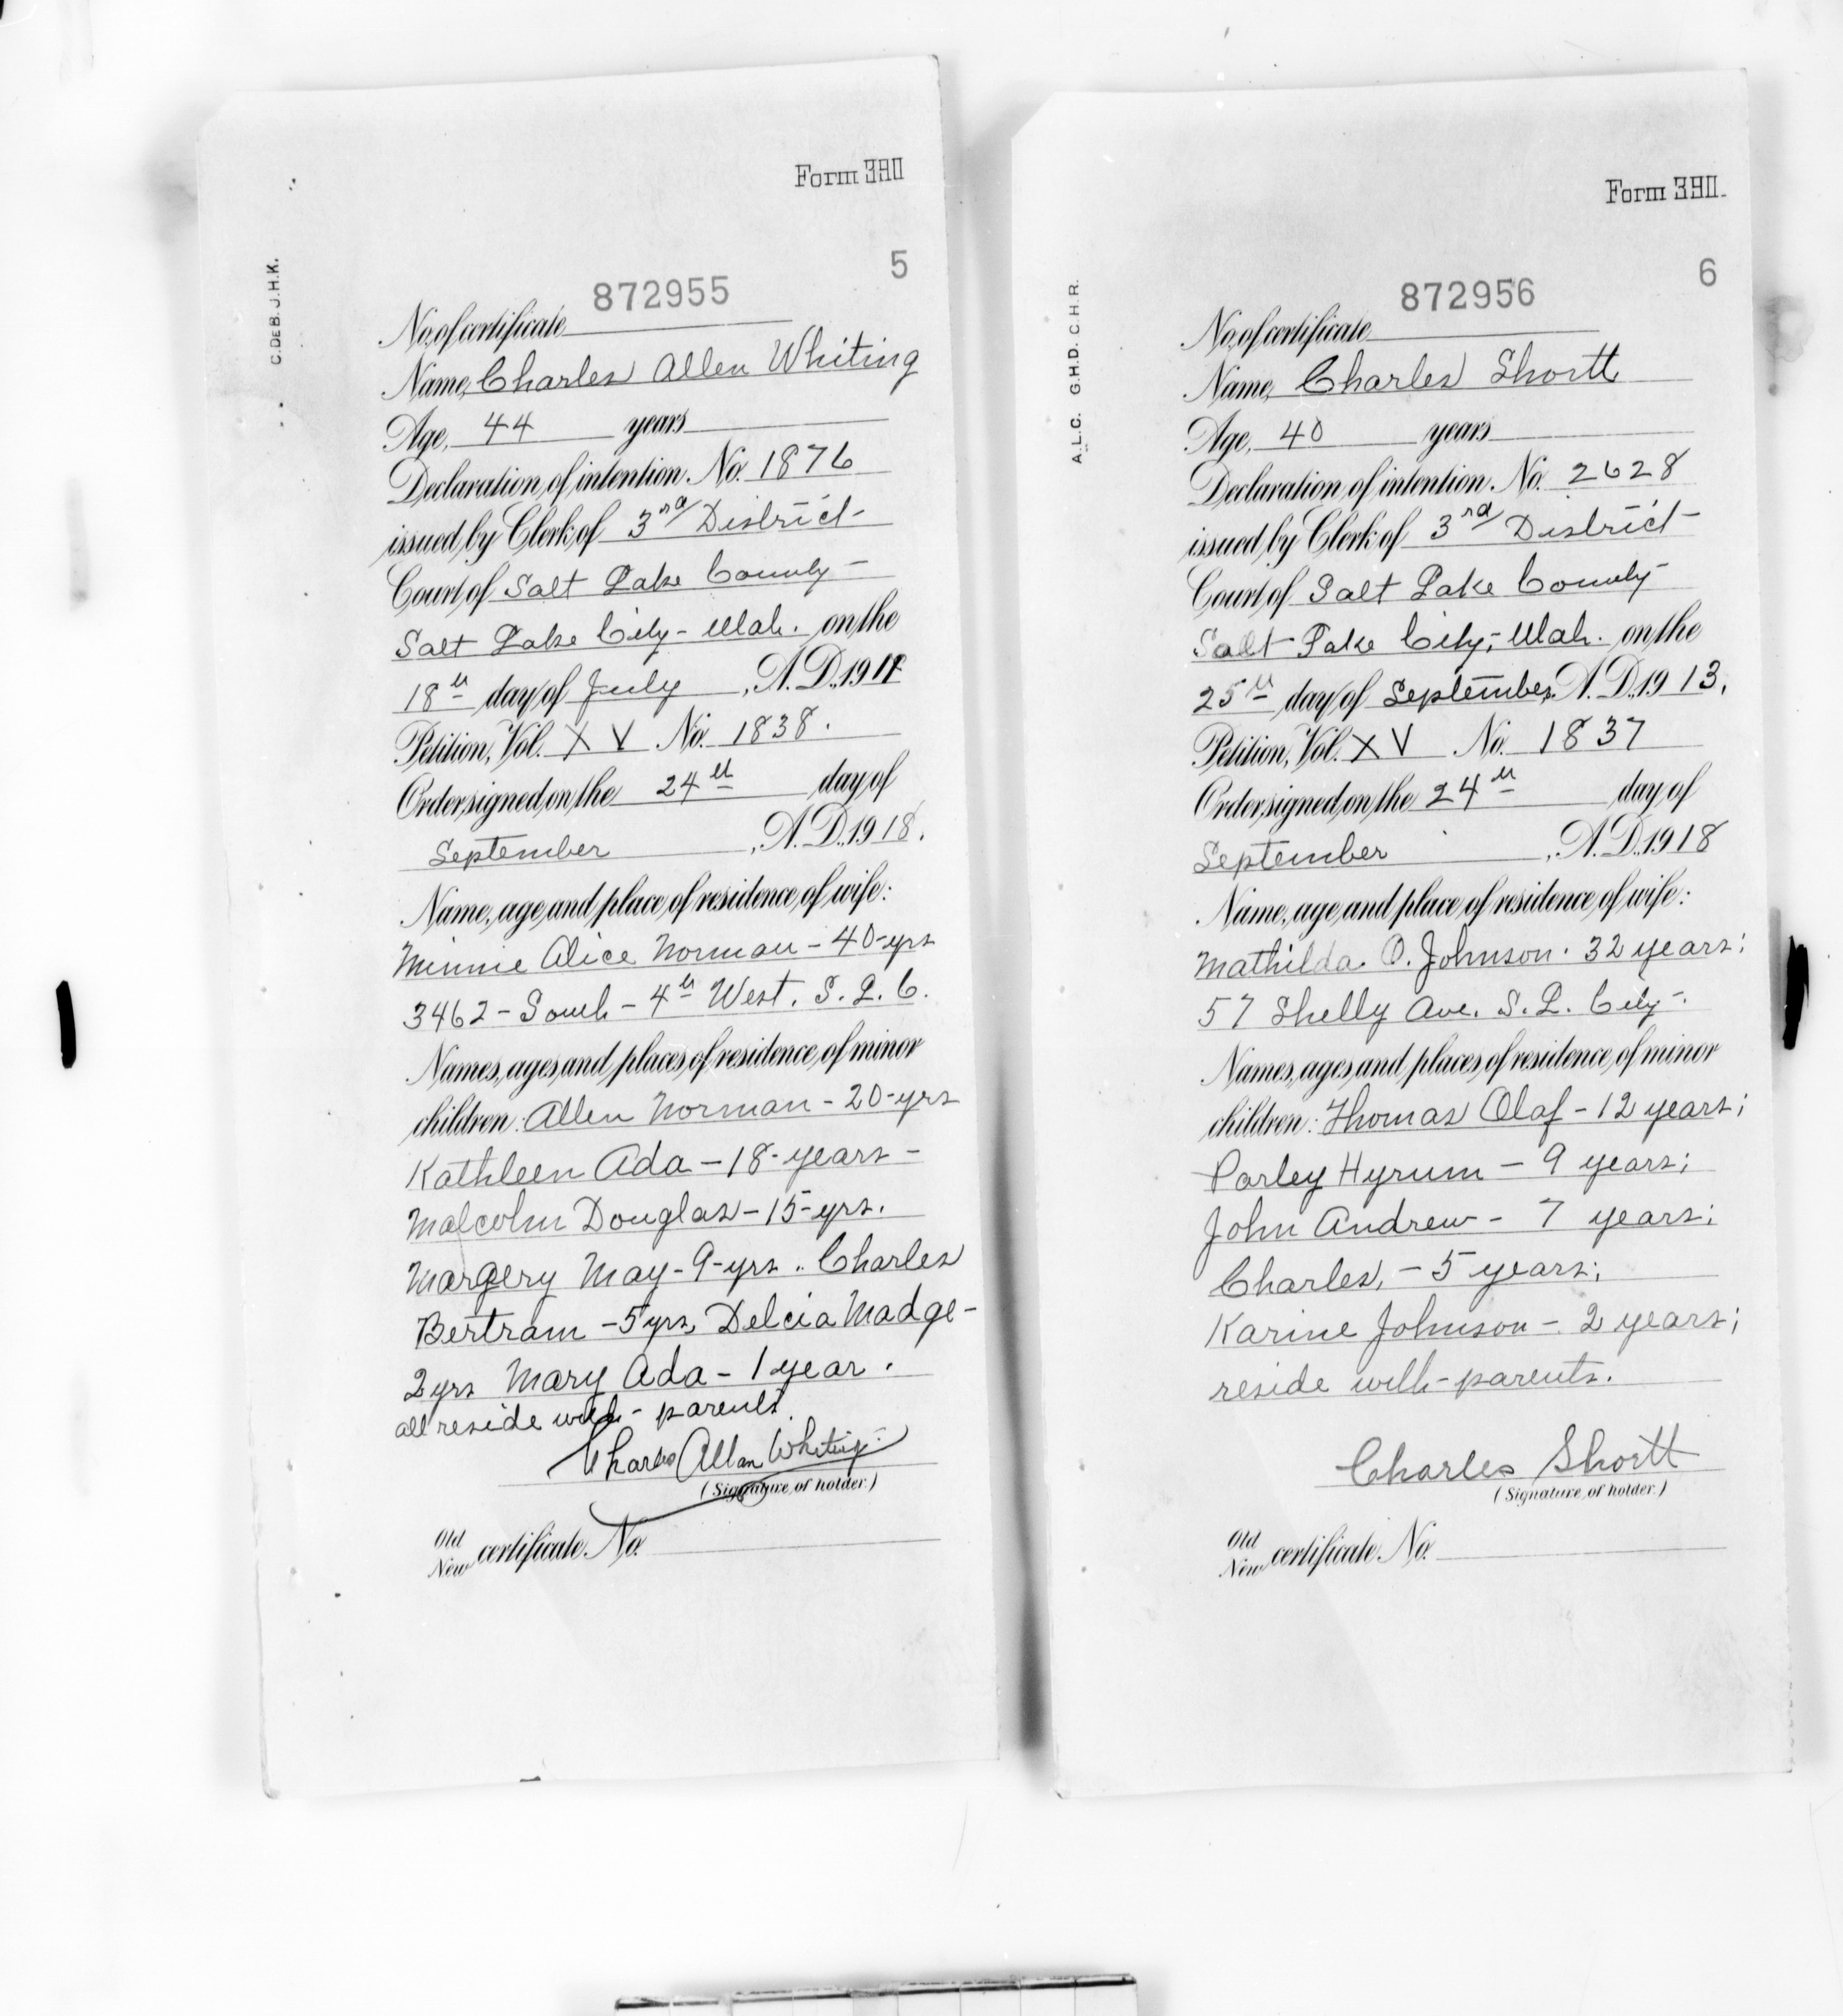 Form 380
5
C.DEB. J.H.K.
872955
No. of certificate
Name, Charles Allen Whiting
Age, 44 years
Declaration of intention No. 1876
issued by Clerk of 3rd District
Court of Salt Lake County -
Salt Lake City - Utah. on the
18th day of July, A.D. 1911
Petition, Vol. XV No. 1838.
Order signed on the 24th day of
September, A.D. 1918.
Name, age and place of residence of wife:
Minnie Alice Norman - 40-yrs
3462 - South - 4th West. S. L. C.
Names, ages and places of residence of minor
children: Allen Norman - 20-yrs
Kathleen Ada - 18-years -
Malcolm Douglas - 15-yrs.
Margery May - 9-yrs.. Charles
Bertram - 5 yrs, Delcia Madge -
2 yrs Mary Ada - 1 year.
all reside with - parents
Charles Allan Whiting
(Signature of holder.)
Old
New certificate No.
Form 390.
6
A.L.C. G.H.D. C.H.R.
872956
No. of certificate
Name, Charles Shortt
Age, 40 years
Declaration of intention No. 2628
issued by Clerk of 3rd District -
Court of Salt Lake County -
Salt Lake City, Utah. on the
25th day of September, A.D. 1913.
Petition, Vol. XV No. 1837
Order signed on the 24th day of
September, A.D. 1918
Name, age and place of residence of wife:
Mathilda O. Johnson. 32 years;
57 Shelly Ave. S. L. City -.
Names, ages and places of residence of minor
children: Thomas Olaf - 12 years;
Parley Hyrum - 9 years;
John Andrew - 7 years;
Charles, - 5 years;
Karine Johnson - 2 years;
reside with - parents.
Charles Shortt
(Signature of holder.)
Old
New certificate No.